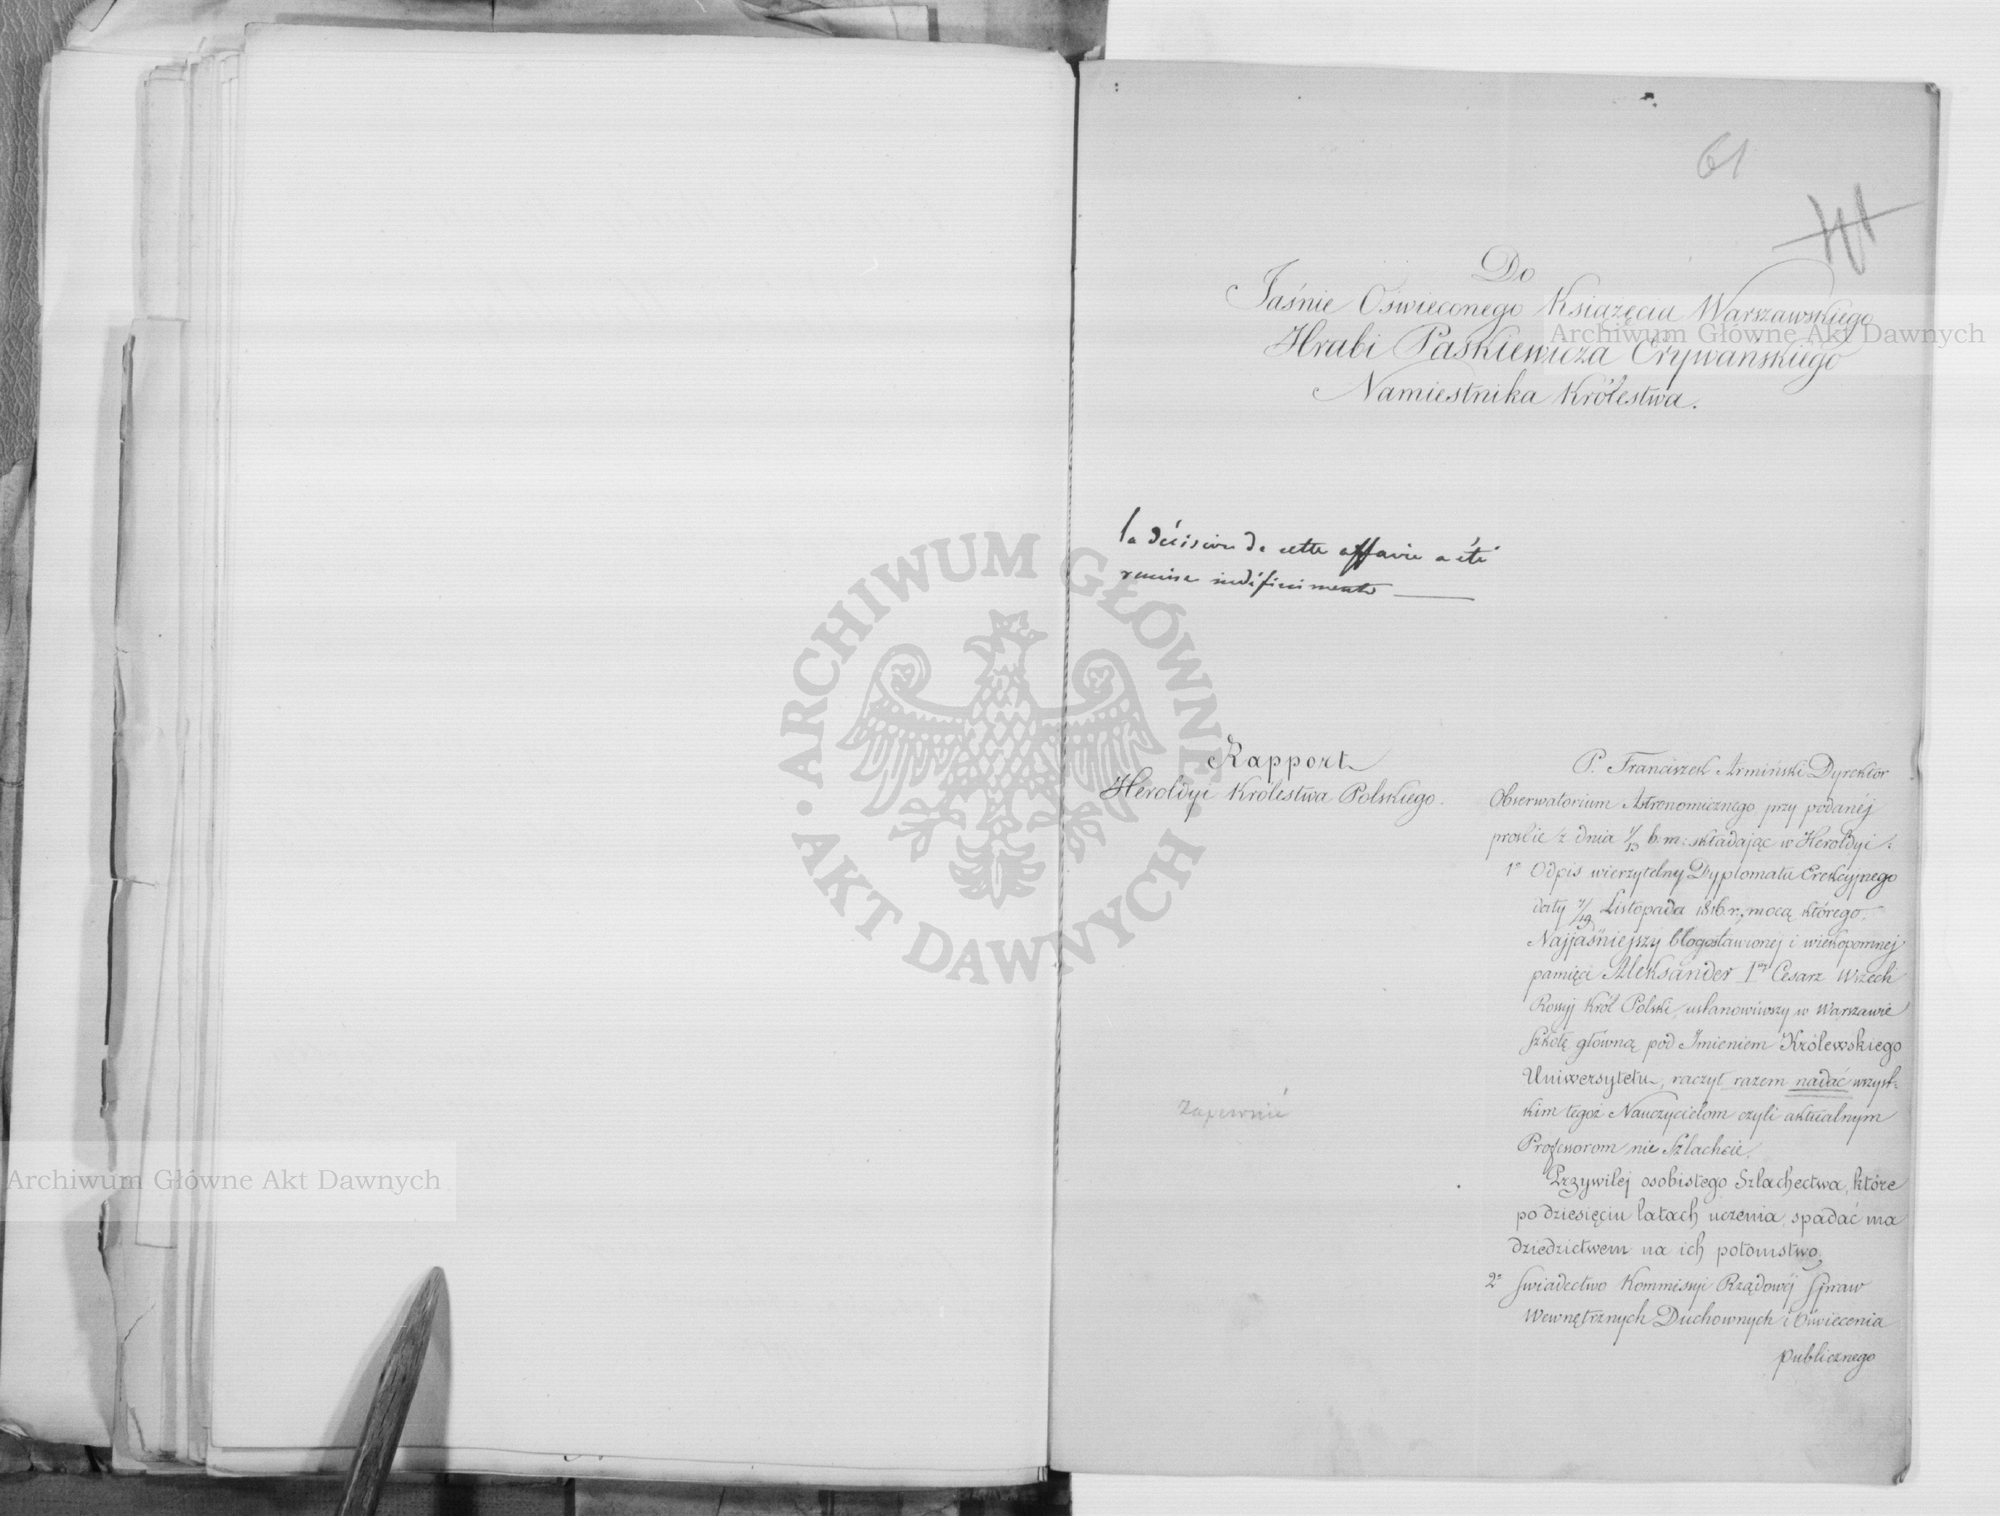 61
Do
Jaśnie Oświeconego Książęcia Warszawskiego
Hrabi Paskiewicza Erywańskiego
Namiestnika Królestwa.
la décision de cette affaire a été
remise indéfiniment
Rapport
Heroldyi Królestwa Polskiego.
P. Franciszek Armiński Dyrektor
Obserwatorium Astronomicznego przy podanéj
prośbie z dnia 1/13 b. m: składając w Heroldyi:
1o Odpis wierzytelny Dyplomatu Erekcyjnego
daty 7/19 Listopada 1816 r, mocą którego,
Najjaśniejszy błogosławionej i wiekopomnej
pamięci Aleksander Iszy Cesarz Wszech
Rossyj Król Polski, ustanowiwszy w Warszawie
Szkołę główną pod Imieniem Królewskiego
Uniwersytetu, raczył razem nadać wszyst-
kim tegoż Nauczycielom czyli aktualnym
Professorom nie Szlachcie,
Przywilej osobistego Szlachectwa, które
po dziesięciu latach uczenia, spadać ma
dziedzictwem na ich potomstwo,
2o Świadectwo Kommissyi Rządowéj Spraw
Wewnętrznych Duchownych i Oświecenia
publicznego
Zapewnić
Archiwum Główne Akt Dawnych
Archiwum Główne Akt Dawnych
ARCHIWUM GŁÓWNE · AKT DAWNYCH ·